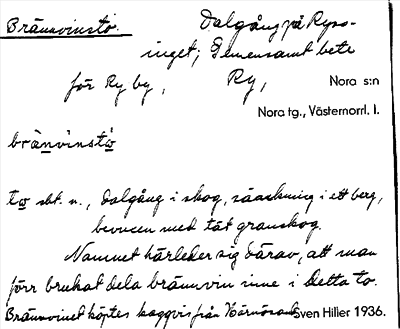 Brännvinsto. Dalgång på Ryss-
inget; Gemensamt bete
för Ry by, Ry, Nora s:n
Nora tg., Västernorrl. l.
brä̀nvinstò
to sbt. n., dalgång i skog, sänkning i ett berg,
bevuxen med tät granskog.
Namnet härleder sig därav, att man
förr brukat dela brännvin inne i detta to.
Brännvinet köptes kaggvis från Härnösand Sven Hiller 1936.